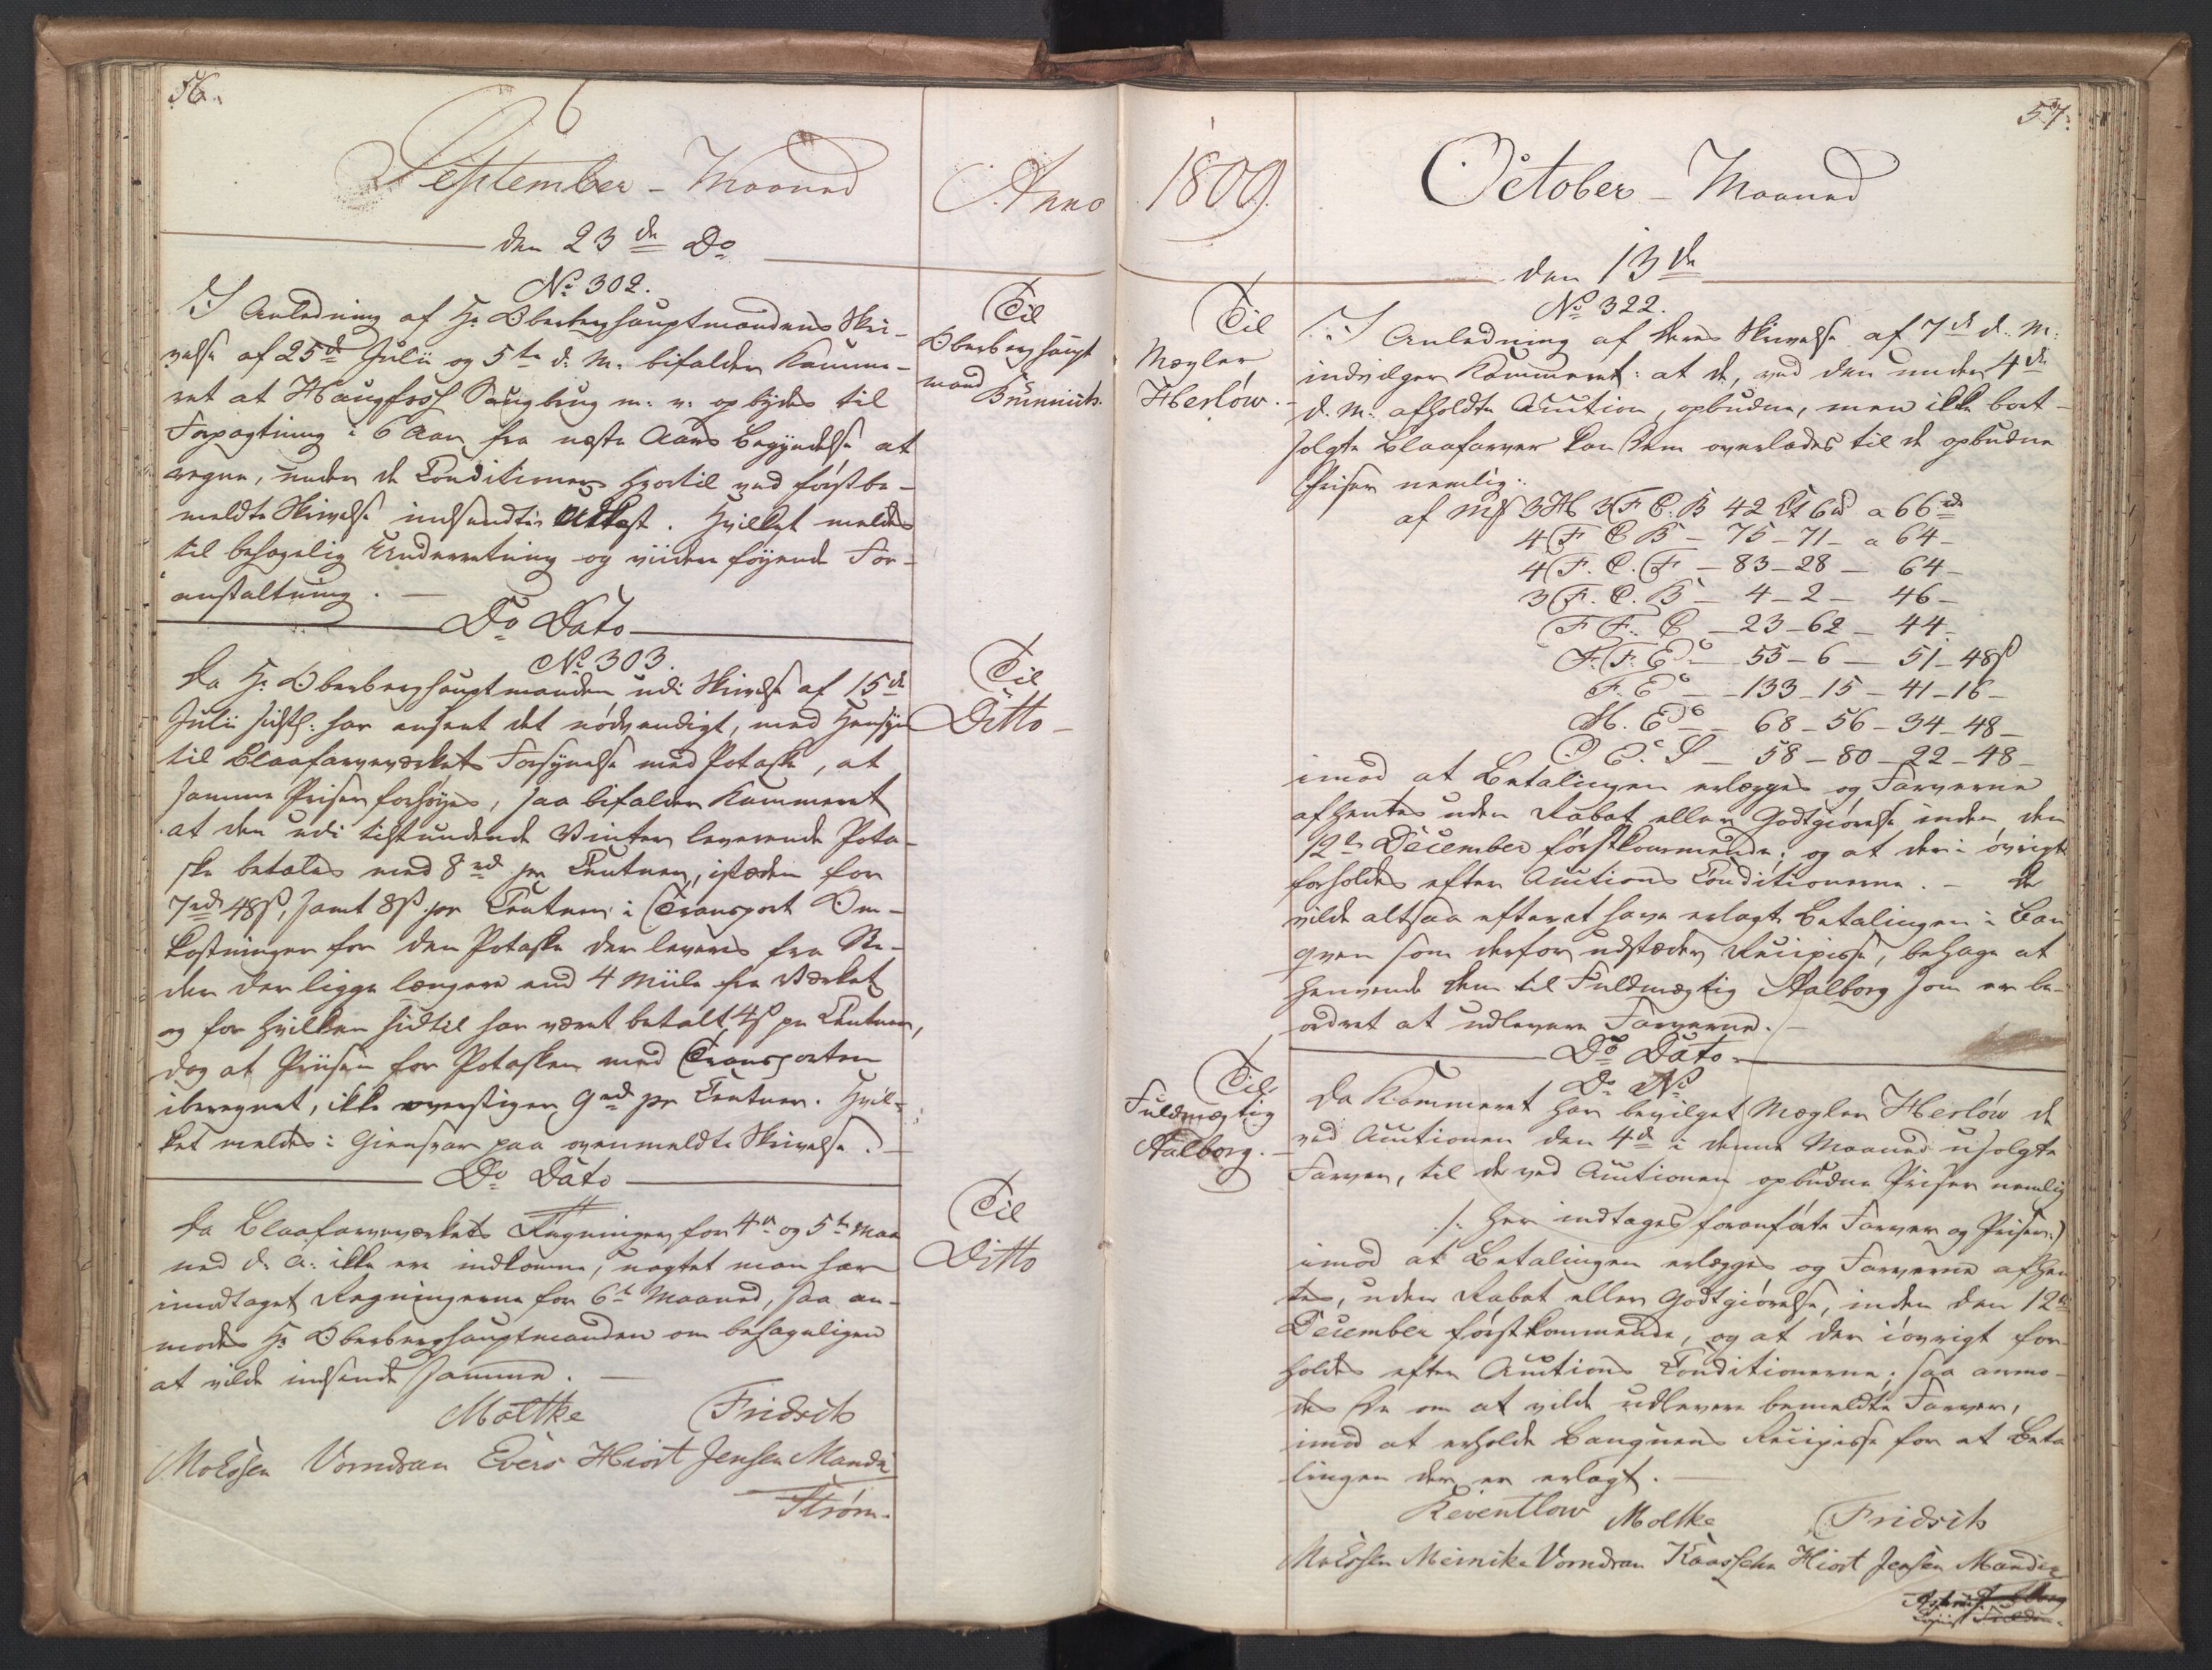 56.
September - Maaned
Anno
den 23de Do
No 302.
Til
Oberberghaupt
mand
Brünnich.
I Anledning af Hr Oberberghauptmandens Skri-
velse af 25de Julii og 5te d: M. bifalder Kamme-
ret at Haugfos Saugbrug m. v. opbydes til
Forpagtning i 6 Aar fra næste Aars Begyndelse at
regne, under de Conditioner hvortil ved førstbe-
meldte Skrivelse indsendtes Udkast. Hvilket meldes
til behagelig Underretning og viidere føyende For-
anstaltning. —
Do Dato
No 303.
Til
Ditto -
Da Hr Oberberghauptmanden udi Skrivelse af 15de
Julii sidstl: har anseet det nødvendigt, med Hensyn
til Blaafarveværkets Forsynelse med Potaske, at
samme Priser forhøyes, saa bifalder Kammeret
at den udi tilstundende Vinter leverende Pota-
ske betales med 8 rd pr Centner, istæden for
7rd 48ß, samt 8ß pr Centner i Transport Om-
kostninger for den Potaske der leveres fra Ste-
der der ligge længere end 4 Miile fra Værket
og for hvilken hidtil har været betalt 4ß pr Centner,
dog at Priisen for Potasken med Transporten
iberegnet, ikke overstiger 9rd pr Centner. Hvil-
ket meldes i Giensvar paa ovenmeldte Skrivelse. -
Do Dato
Til
Ditto
Da Blaafarveværkets Regninger for 4de og 5te Maa
ned d. A: ikke ere indkomne, uagtet man har
imodtaget Regningerne for 6te Maaned, saa an-
modes Hr Oberberghauptmanden om behageligen
at vilde indsende samme. —
Moltke Fridsch
Mølssen Vorndran Evers Hiort Jensen Mandix
Strøm.
57.
1809.
October - Maaned
den 13de
No 322.
Til
Mægler
Herløw.
I Anledning af Deres Skrivelse af 7de d. M:
indvilger Kammeret: at de, ved den under 4de
d. M: afholdte Auction, opbudne, men ikke bort-
solgte Blaafarver kan Dem overlades til de opbudne
Priser nemlig:
af 3H 3F C. B 42 Ct 6 a 66 rd
4 F C B — 75 — 71 — a 64 —
4 F. C. F — 83 — 28 — 64 —
3 F. C. B — 4 — 2 — 46 —
F F. C — 23 — 62 — 44
F. F. E — 55 — 6 — 51 — 48ß
F. E — 133 — 15 — 41 — 16 —
M. E — 68 — 56 — 34 — 48 —
O E. S — 58 — 80 — 22 — 48 —
imod at Betalingen erlægges og Farverne
afhentes uden Rabat eller Godtgiørelse inden den
12te December førstkommende; og at der i øvrigt
forholdes efter Auctions Conditionerne. - De
vilde altsaa efter at have erlagt Betalingen i Ban
qven som derfor udstæder Recipisse, behage at
henvende Dem til Fuldmægtig Aalborg som er be-
ordret at udlevere Farverne. -
Do Dato
Do No
Til
Fuldmægtig
Aalborg. -
Da Kammeret har bevilget Mægler Herløw de
ved Auctionen den 4de i denne Maaned usolgte
Farver, til de ved Auctionen opbudne Priser nemlig
/: her indtages foranførte Farver og Priser:)
imod at Betalingen erlægges og Farverne afhen
tes, uden Rabat eller Godtgiørelse, inden den 12te
December førstkommende, og at der iøvrigt for-
holdes efter Auctions Conditionerne; saa anmo-
des De om at vilde udlevere bemeldte Farver,
imod at erholde Banqvens Recipisse for at Beta
lingen der er erlagt. —
Reventlow Moltke Fridsch
Mølssen Meinike Vorndran Hiort Jensen Mandix